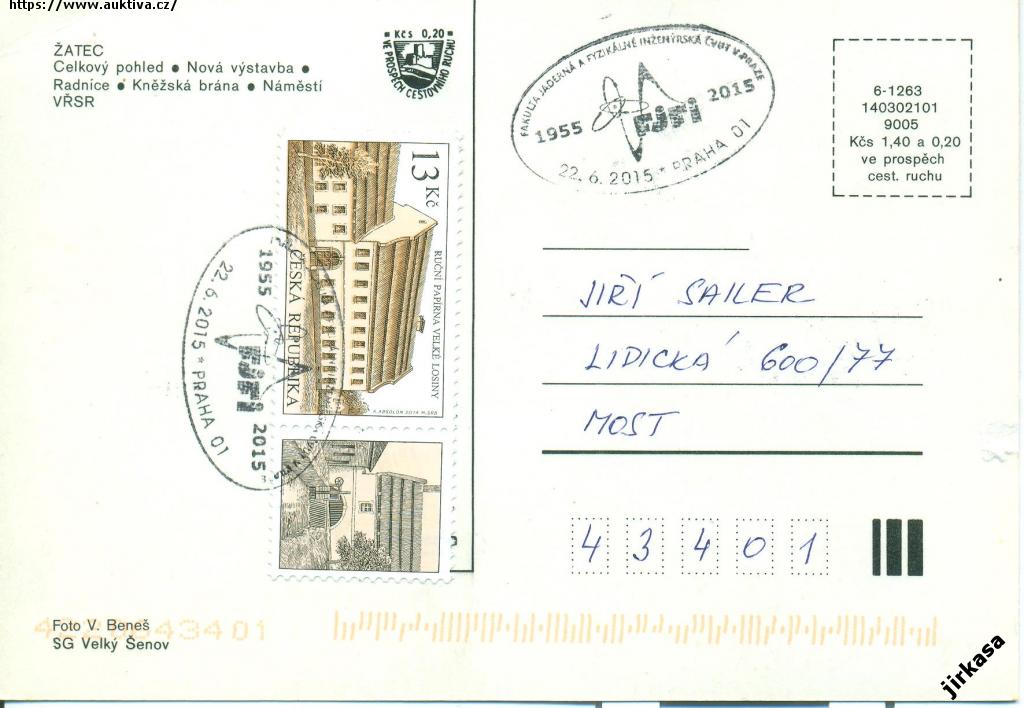 https://www.auktiva.cz/
ŽATEC
Celkový pohled ● Nová výstavba ●
Radnice ● Kněžská brána ● Náměstí
VŘSR
Kčs 0,20
VE PROSPĚCH CESTOVNÍHO RUCHU
FAKULTA JADERNÁ A FYZIKÁLNĚ INŽENÝRSKÁ ČVUT V PRAZE
1955 FJFI 2015
22. 6. 2015 * PRAHA 01
6-1263
140302101
9005
Kčs 1,40 a 0,20
ve prospěch
cest. ruchu
13 Kč
RUČNÍ PAPÍRNA VELKÉ LOSINY
ČESKÁ REPUBLIKA
A. ABSOLON 2014 M. SRB
1955 FJFI 2015
22. 6. 2015 * PRAHA 01
JIŘÍ SAILER
LIDICKÁ 600/77
MOST
43401
Foto V. Beneš
SG Velký Šenov
jirkasa